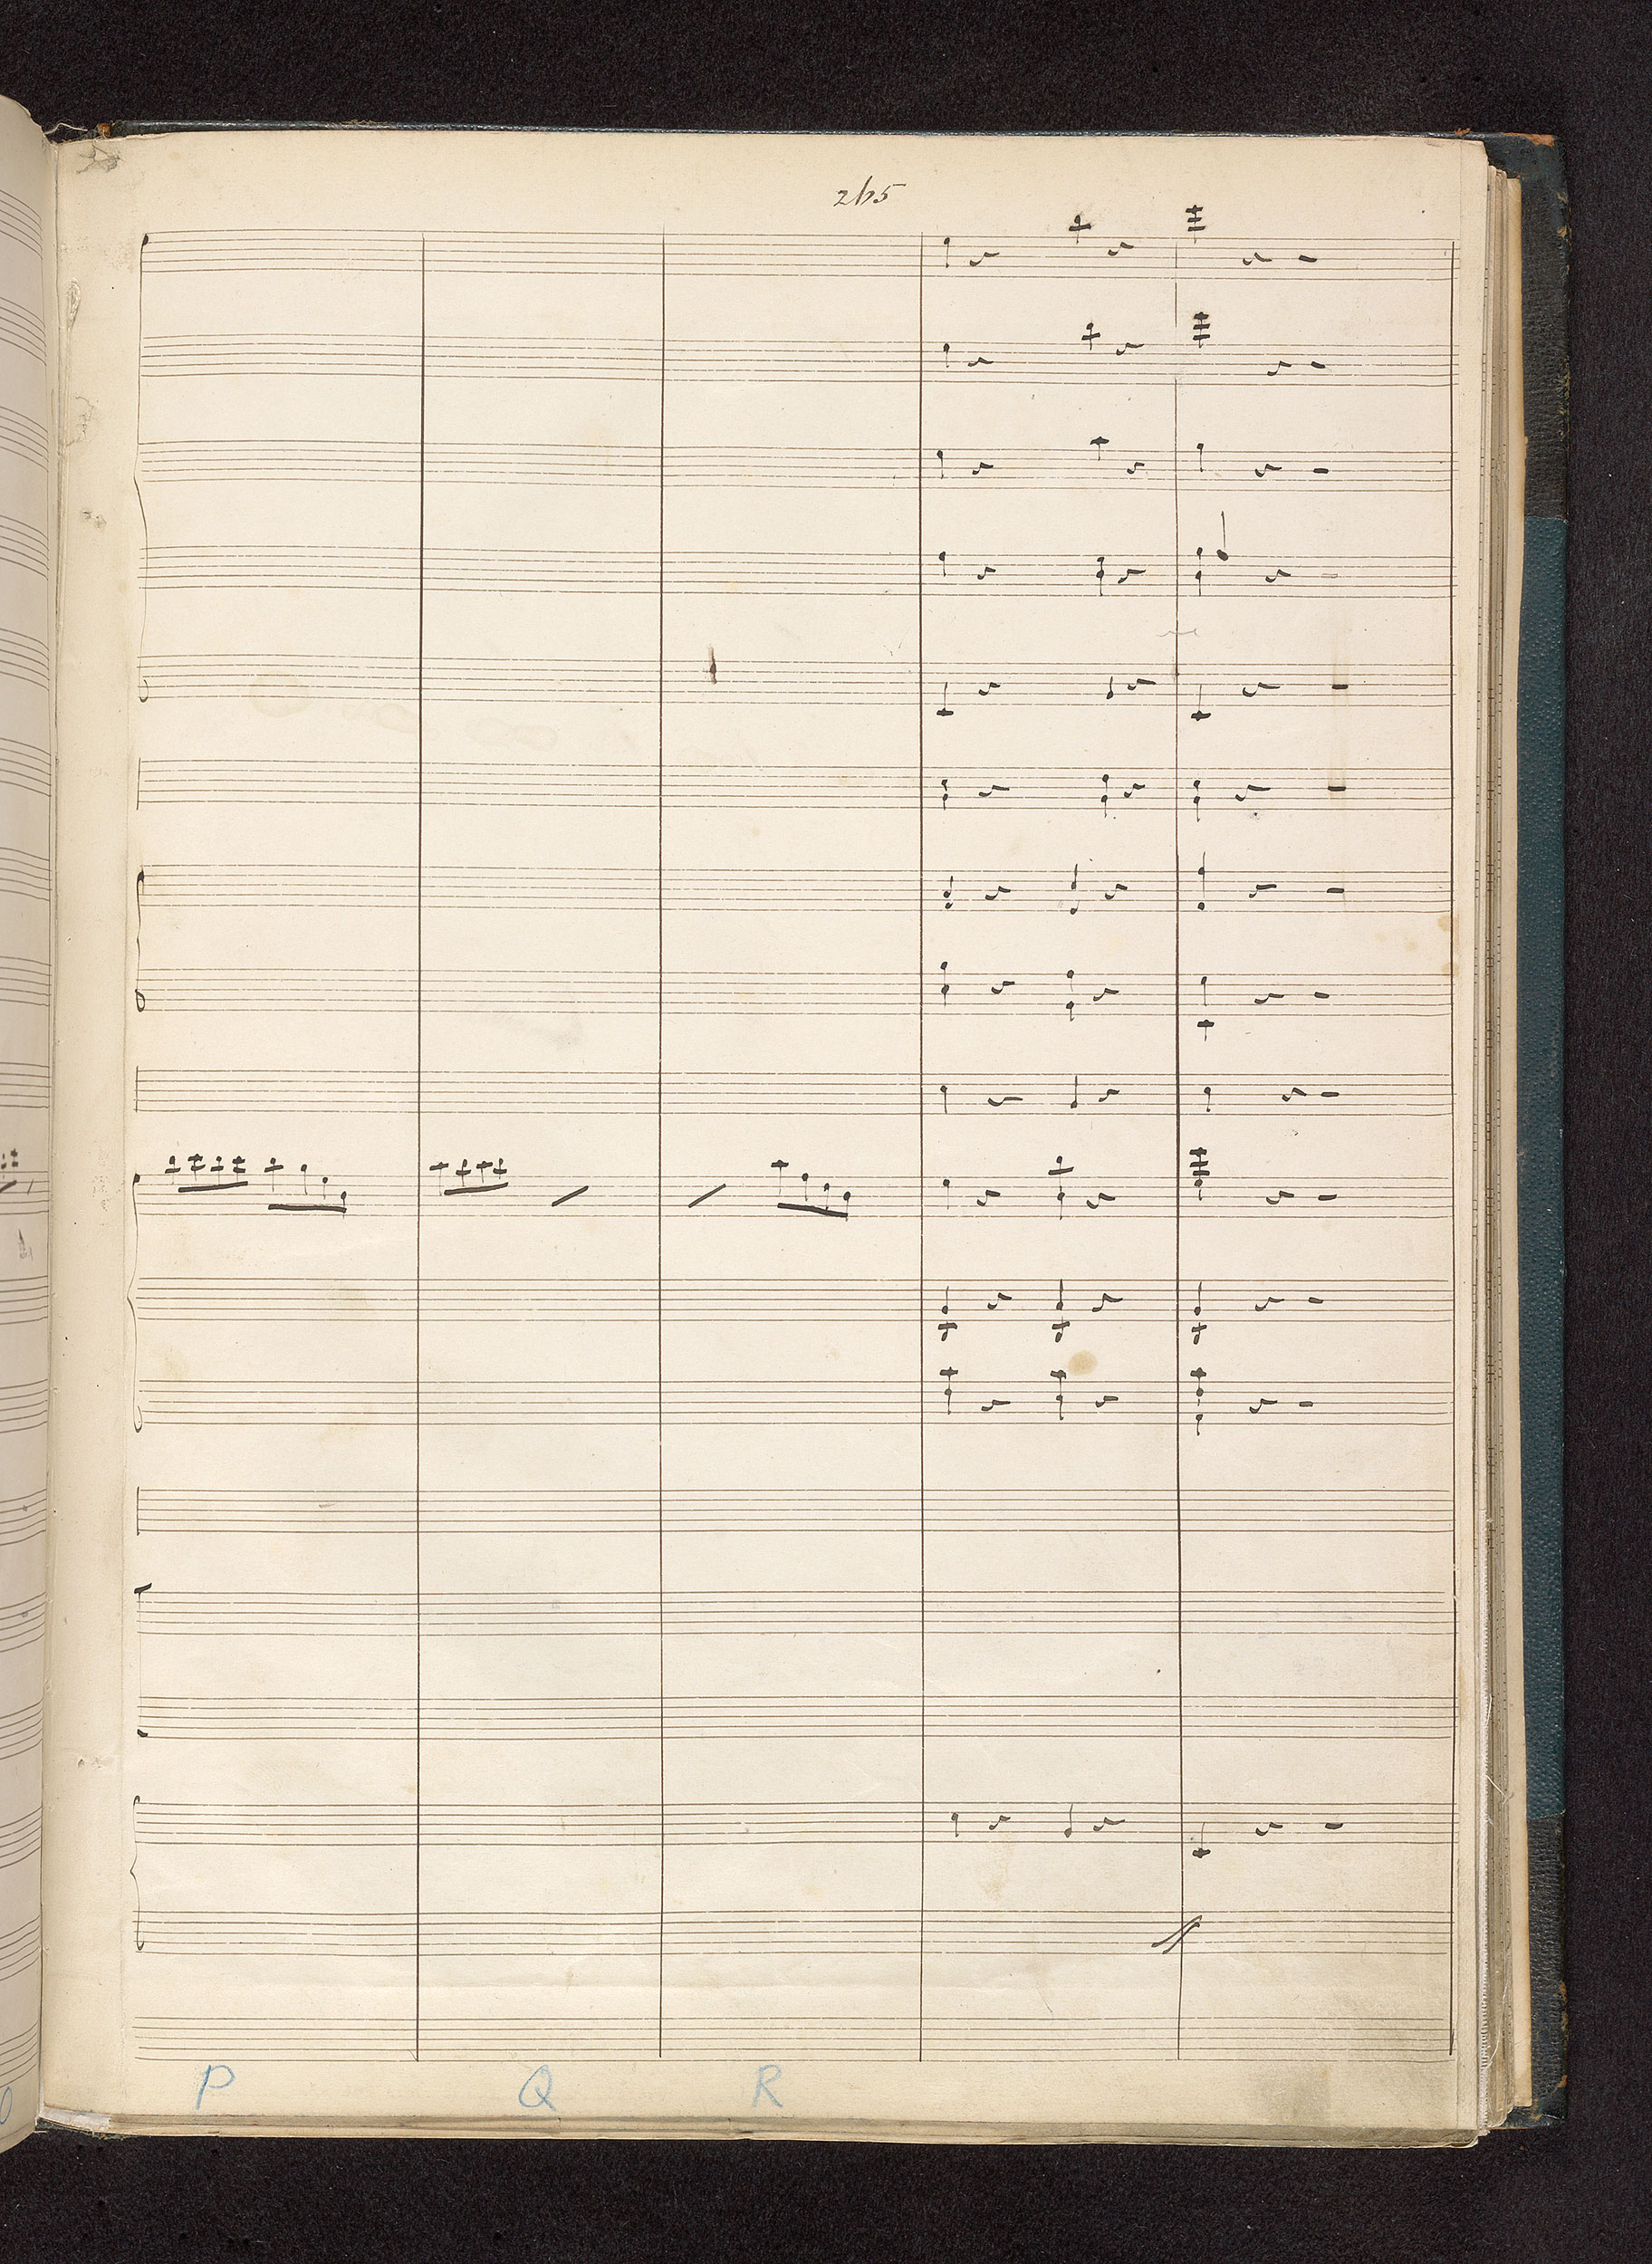 265
P Q R